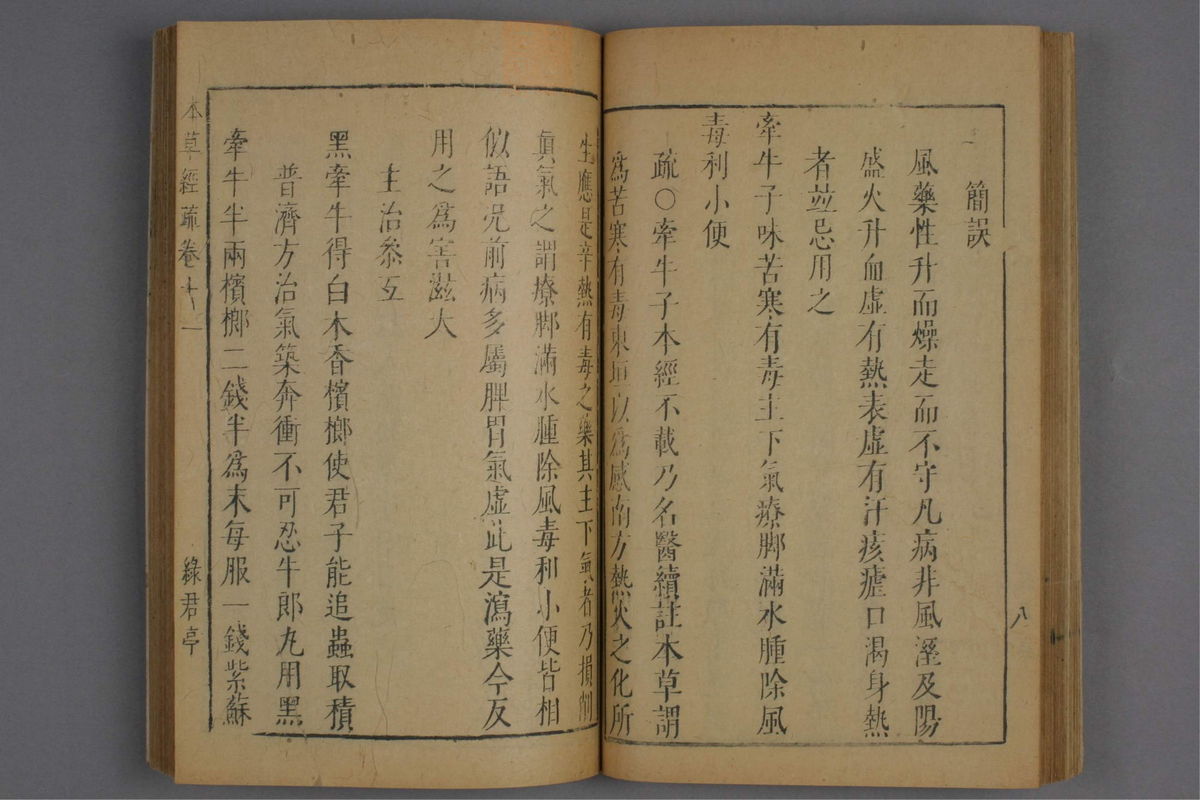 簡誤
風藥性升而燥走而不守凡病非風溼及陽
盛火升血虛有熱表虛有汗痎瘧口渴身熱
者並忌用之
牽牛子味苦寒有毒主下氣療脚滿水腫除風
毒利小便
疏○牽牛子本經不載乃名醫續註本草謂
爲苦寒有毒東垣以爲感南方熱火之化所
生應是辛熱有毒之藥其主下氣者乃損削
眞氣之謂療脚滿水腫除風毒利小便皆相
似語况前病多屬脾胃氣虛此是瀉藥今反
用之爲害滋大
主治叅互
黑牽牛得白木香檳榔使君子能追蟲取積
普濟方治氣築奔衝不可忍牛郎丸用黑
牽牛半兩檳榔二錢半爲末每服一錢紫蘇
本草經疏卷十一
綠君亭
八